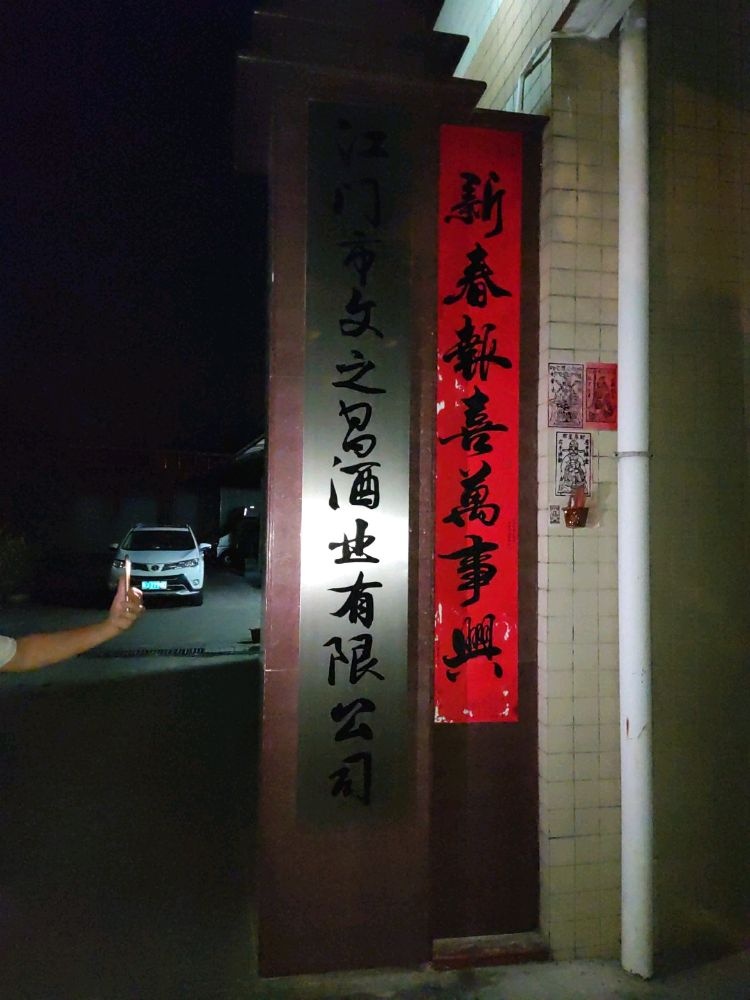 江门市文之昌酒业有限公司
新春報喜萬事興